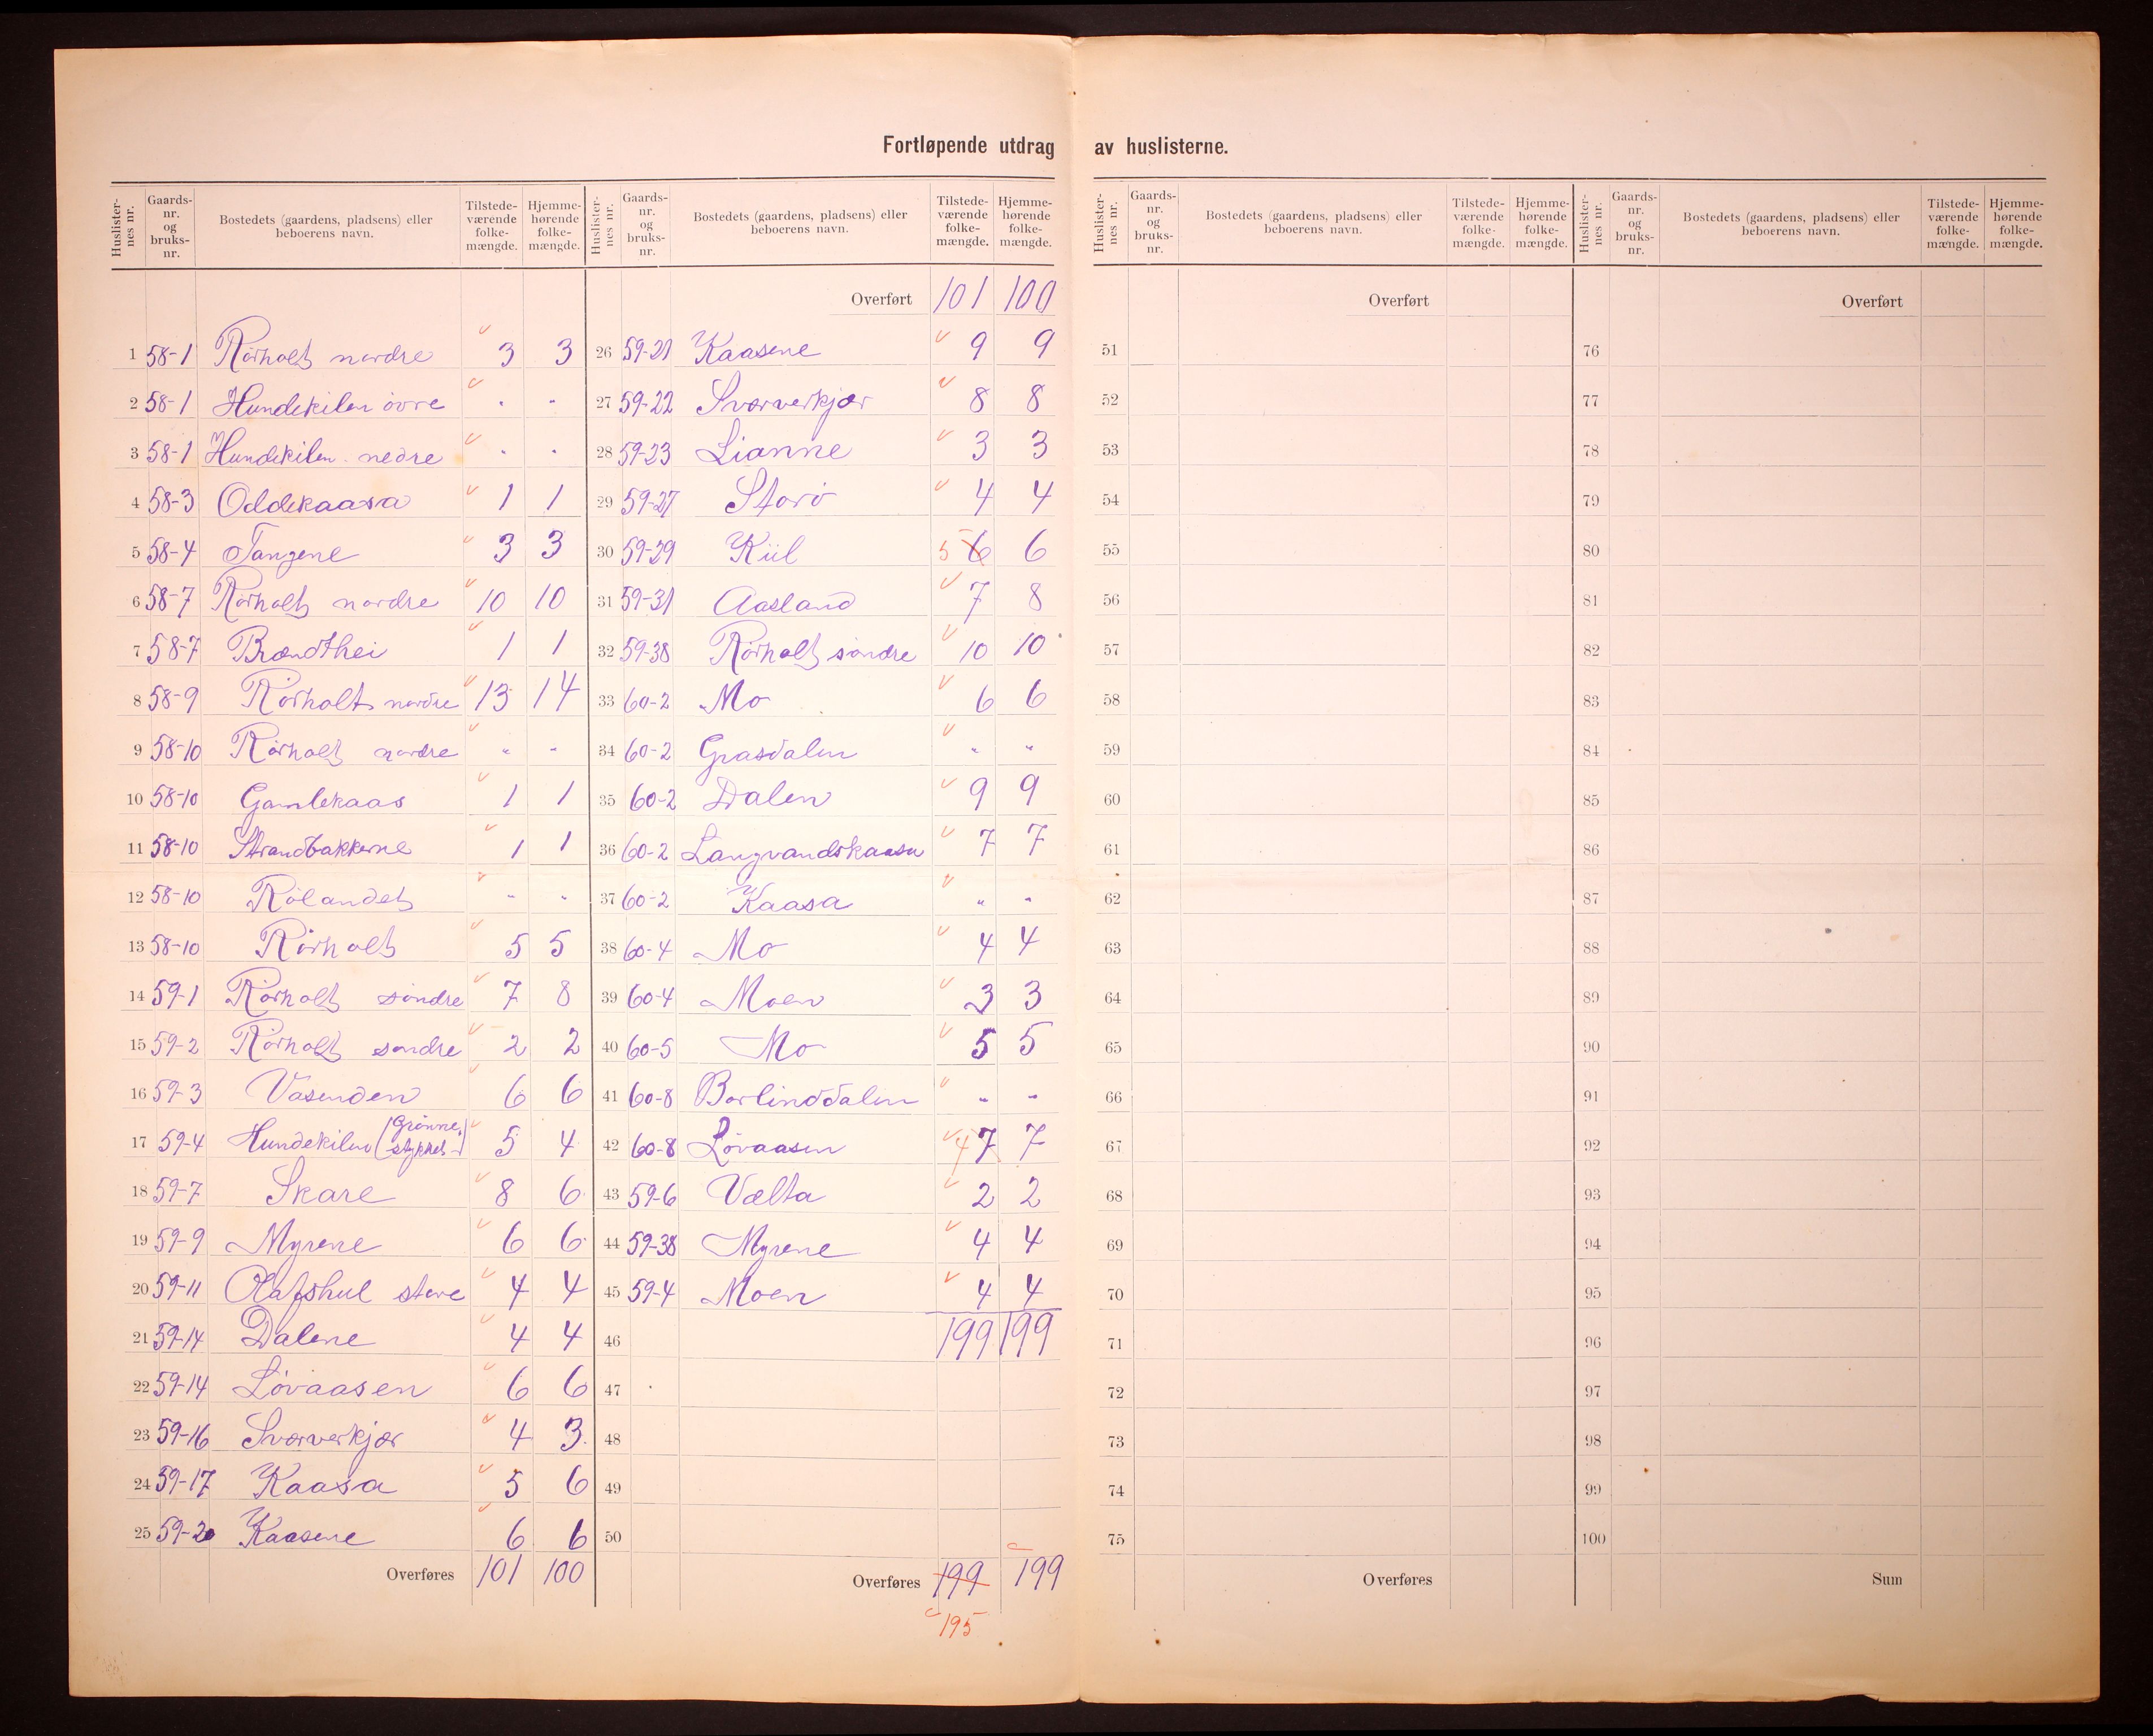 Fortløpende utdrag av huslisterne.
Huslister-nes nr. Gaards-nr. og bruks-nr. Bostedets (gaardens, pladsens) eller beboerens navn. Tilstede-værende folke-mængde. Hjemme-hørende folke-mængde.
1 58-1 Rørholt nordre 3 3
2 58-1 Hundekilen øvre " "
3 58-1 Hundekilen nedre " "
4 58-3 Oddekaasa 1 1
5 58-4 Tangene 3 3
6 58-7 Rørholt nordre 10 10
7 58-7 Brændthei 1 1
8 58-9 Rørholt nordre 13 14
9 58-10 Rørholt nordre " "
10 58-10 Gamlekaas 1 1
11 58-10 Strandbakkerne 1 1
12 58-10 Rølandet " "
13 58-10 Rørholt 5 5
14 59-1 Rørholt søndre 7 8
15 59-2 Rørholt søndre 2 2
16 59-3 Vasenden 6 6
17 59-4 Hundekilen (Grønne stykket) 5 4
18 59-7 Skare 8 6
19 59-9 Myrene 6 6
20 59-11 Olafshul store 4 4
21 59-14 Dalene 4 4
22 59-14 Løvaasen 6 6
23 59-16 Svarverkjær 4 3
24 59-17 Kaasa 5 6
25 59-20 Kaasene 6 6
Overføres 101 100
Huslister-nes nr. Gaards-nr. og bruks-nr. Bostedets (gaardens, pladsens) eller beboerens navn. Tilstede-værende folke-mængde. Hjemme-hørende folke-mængde.
Overført 101 100
26 59-21 Kaasene 9 9
27 59-22 Svarverkjær 8 8
28 59-23 Lianne 3 3
29 59-27 Storø 4 4
30 59-29 Kiil 5 6 6
31 59-31 Aasland 7 8
32 59-38 Rørholt søndre 10 10
33 60-2 Mo 6 6
34 60-2 Grasdalen " "
35 60-2 Dalen 9 9
36 60-2 Langvandskaasa 7 7
37 60-2 Kaasa " "
38 60-4 Mo 4 4
39 60-4 Moen 3 3
40 60-5 Mo 5 5
41 60-8 Barlinddalen " "
42 60-8 Løvaasen 4 7 7
43 59-6 Vælta 2 2
44 59-38 Myrene 4 4
45 59-4 Moen 4 4
46 199 199
47
48
49
50
Overføres 199 199
195
Huslister-nes nr. Gaards-nr. og bruks-nr. Bostedets (gaardens, pladsens) eller beboerens navn. Tilstede-værende folke-mængde. Hjemme-hørende folke-mængde.
Overført
51
52
53
54
55
56
57
58
59
60
61
62
63
64
65
66
67
68
69
70
71
72
73
74
75
Overføres
Huslister-nes nr. Gaards-nr. og bruks-nr. Bostedets (gaardens, pladsens) eller beboerens navn. Tilstede-værende folke-mængde. Hjemme-hørende folke-mængde.
Overført
76
77
78
79
80
81
82
83
84
85
86
87
88
89
90
91
92
93
94
95
96
97
98
99
100
Sum